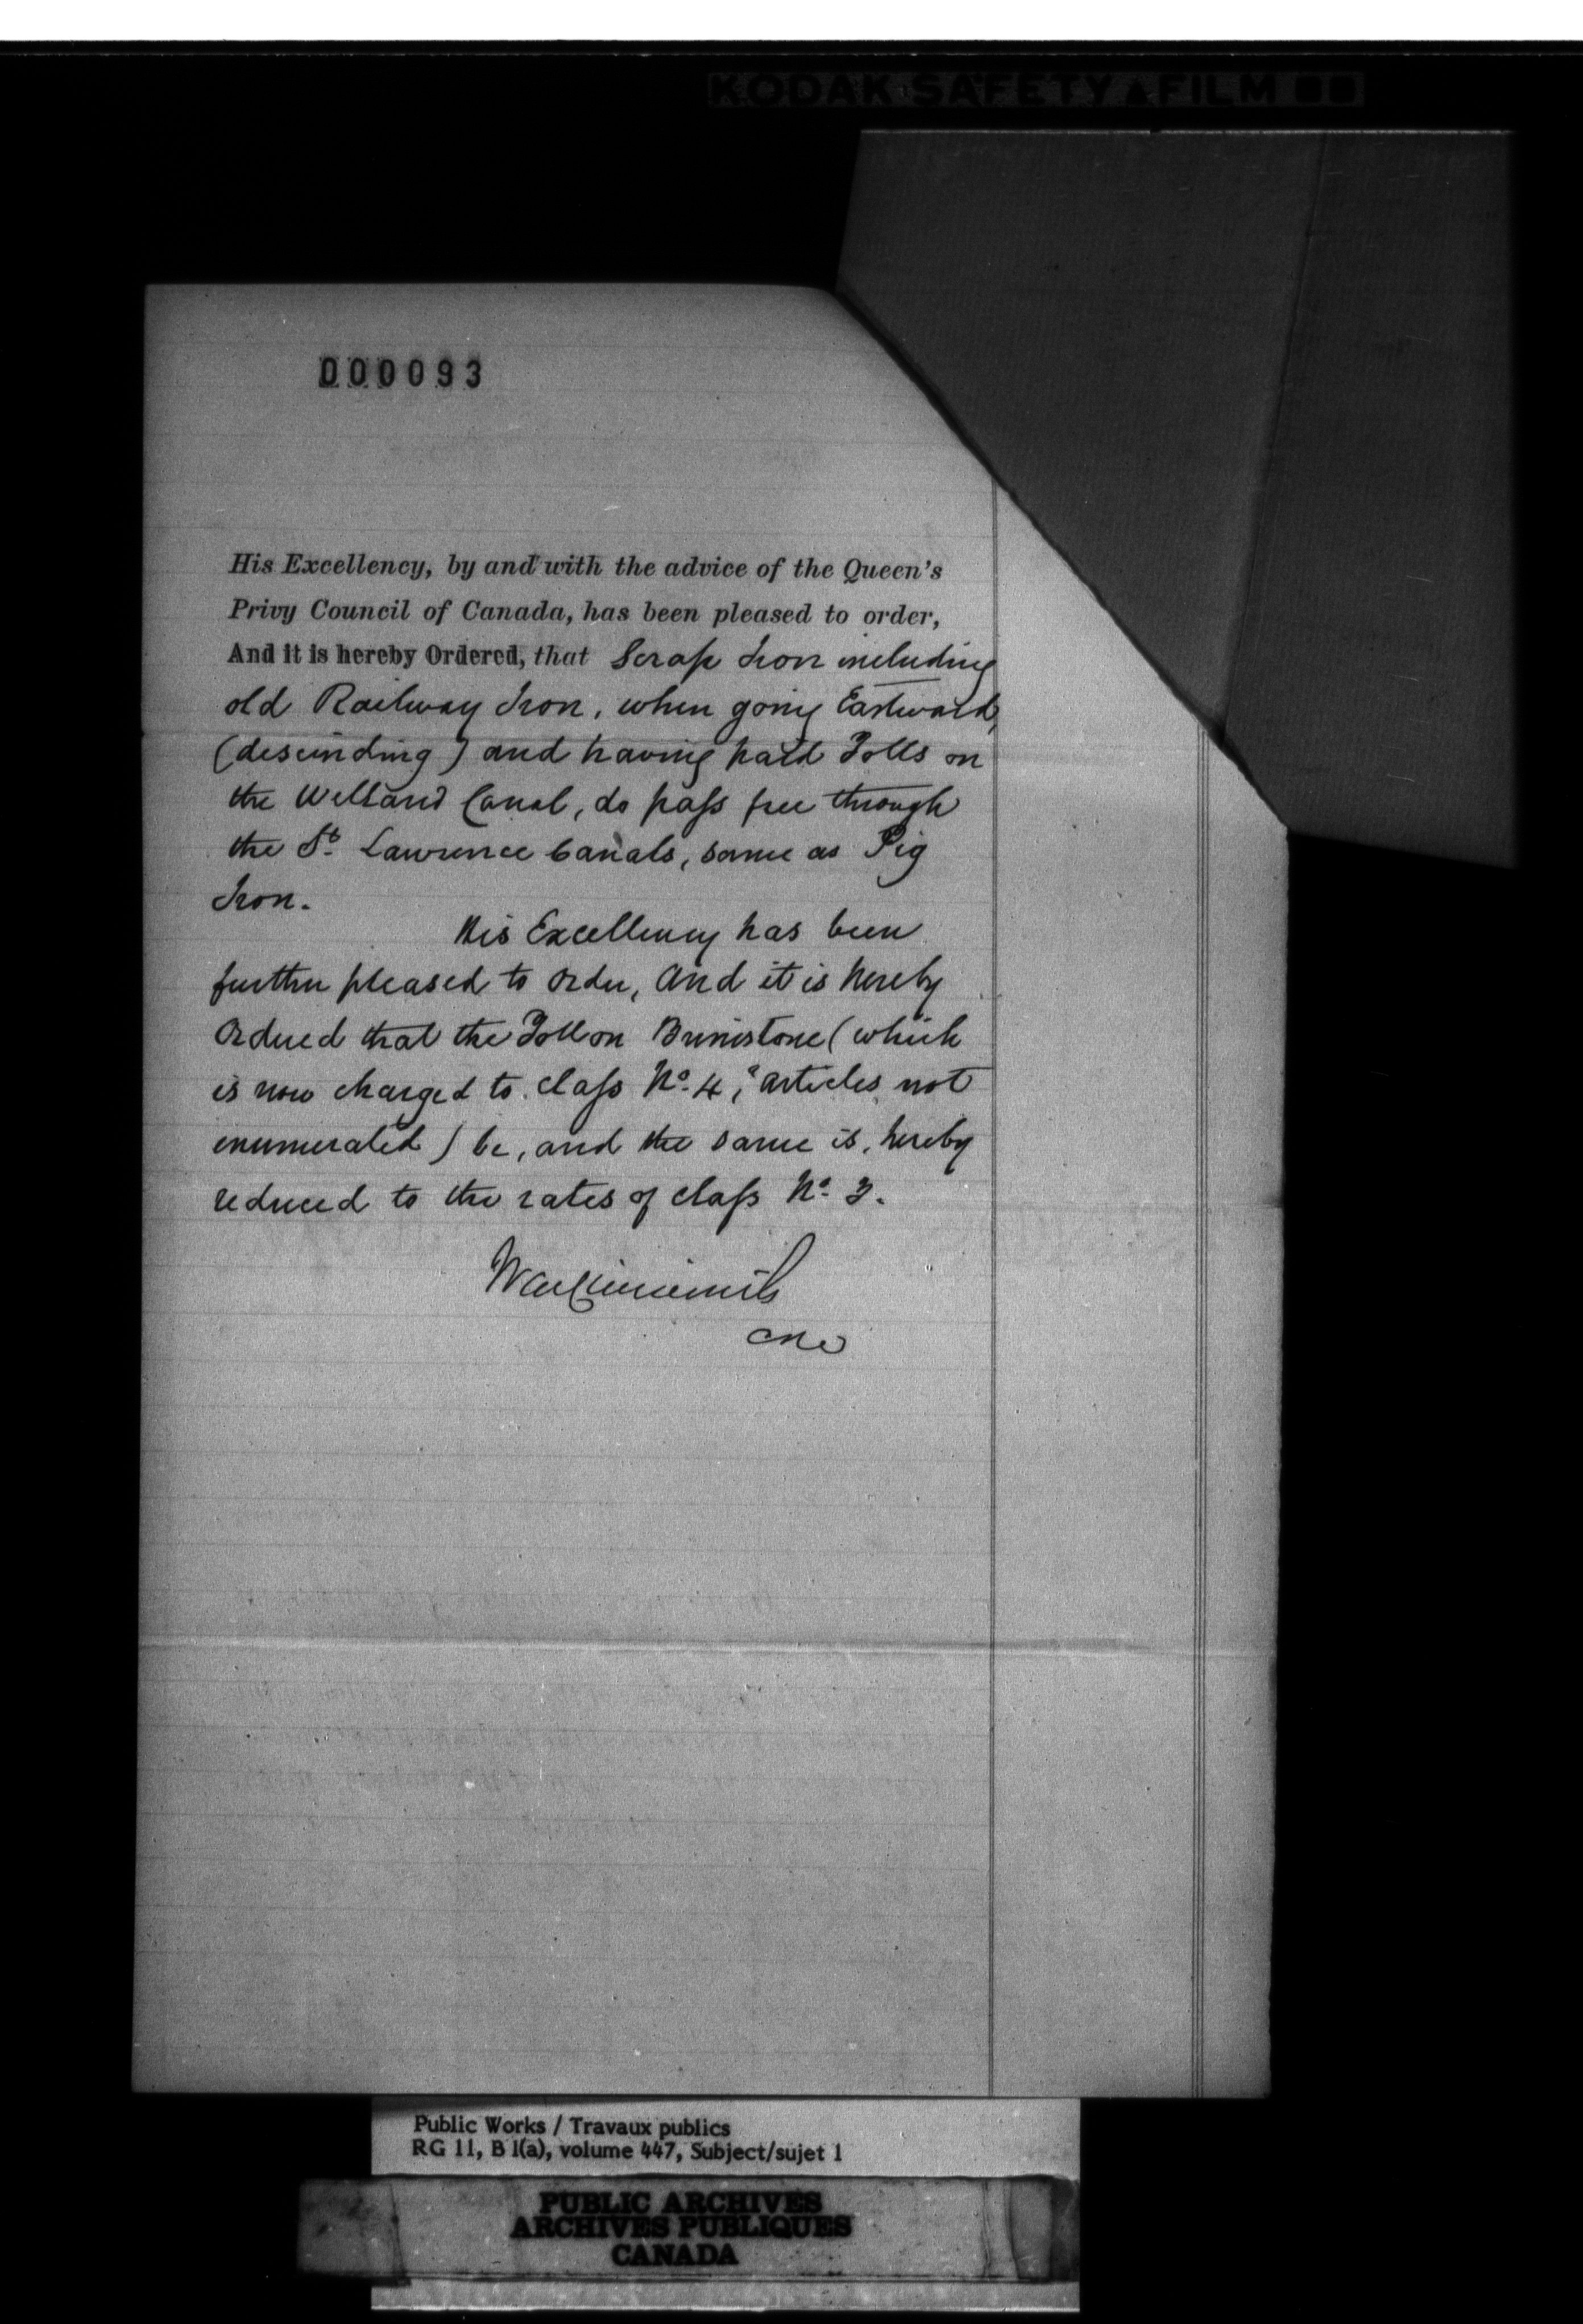 KODAK SAFETY ▲ FILM
000093
His Excellency, by and with the advice of the Queen's
Privy Council of Canada, has been pleased to order,
And it is hereby Ordered, that Scrap Iron including
old Railway Iron, when going Eastward,
(descending) and having paid Tolls on
the Welland Canal, do pass free through
the St. Lawrence Canals, same as Pig
Iron.
His Excellency has been
further pleased to order, And it is hereby
Ordered that the Toll on Brimstone (which
is now charged to class No. 4, "articles not
enumerated) be, and the same is, hereby
reduced to the rates of class No. 3.
Public Works / Travaux publics
RG 11, B 1(a), volume 447, Subject/sujet 1
PUBLIC ARCHIVES
ARCHIVES PUBLIQUES
CANADA